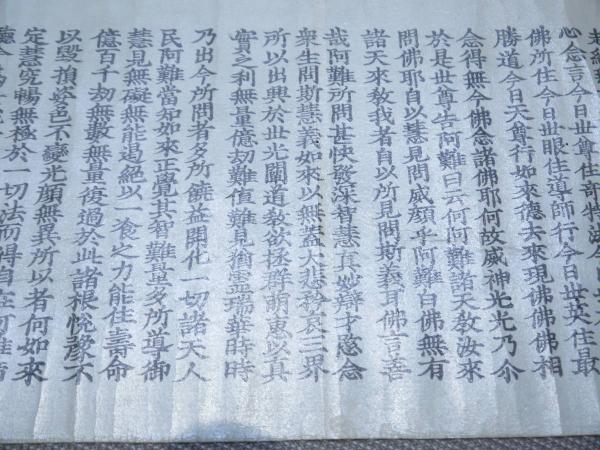 心念言今日世尊住奇特法今日世
佛所住今日世眼住導師行今日世英住最
勝道今日天尊行如來德去來現佛佛佛相
念得無今佛念諸佛耶何故威神光光乃尒
於是世尊告阿難曰云何阿難諸天教汝來
問佛耶自以慧見問威顏乎阿難白佛無有
諸天來教我者自以所見問斯義耳佛言善
哉阿難所問甚快發深智慧真妙辯才愍念
衆生問斯慧義如來以無蓋大悲矜哀三界
所以出興於世光闡道教欲拯群萌惠以真
實之利無量億劫難值難見猶靈瑞華時時
乃出今所問者多所饒益開化一切諸天人
民阿難當知如來正覺其智難量多所導御
慧見無礙無能遏絕以一飡之力能住壽命
億百千劫無數無量復過於此諸根悅豫不
以毀損姿色不變光顏無異所以者何如來
定慧究暢無極於一切法而得自在阿難諦